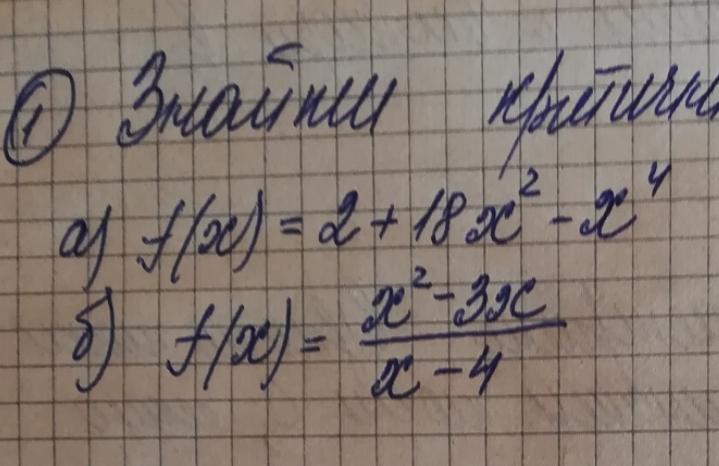 ① Знайти критичн
а) f(x) = 2 + 18x² - x⁴
б) f(x) = \frac{x² - 3x}{x - 4}